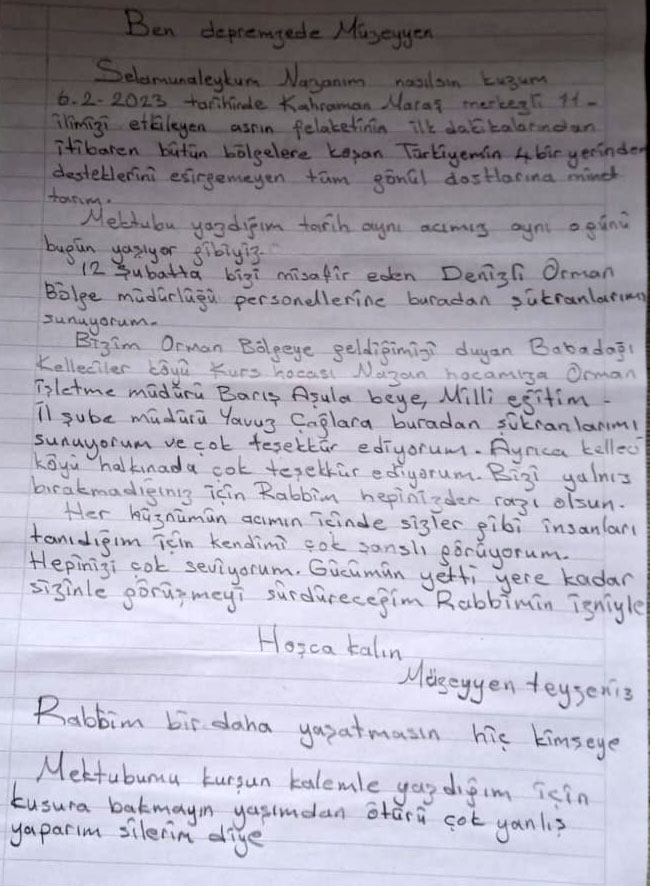 Ben depremzede Müzeyyen
Selamunaleykum Nazanım nasılsın kuzum
6.2-2023 tarihinde Kahraman Maraş merkezli 11-
ilimizi etkileyen asrın felaketinin ilk dakikalarından
itibaren bütün bölgelere koşan Türkiyemin 4 bir yerinden
desteklerini esirgemeyen tüm gönül dostlarına minet
tarım.
Mektubu yazdığım tarih aynı acımız aynı ogünü
bugün yaşıyor gibiyiz.
12 Şubatta bizi misafir eden Denizli Orman
Bölge müdürlüğü personellerine buradan şükranlarımı
sunuyorum.
Bizim Orman Bölgeye geldiğimizi duyan Babadağı
Kelleciler köyü Kurs hocası Nazan hocamıza Orman
işletme müdürü Barış Aşula beye, Milli eğitim-
il şube müdürü Yavuz Çağlara buradan şükranlarımı
sunuyorum ve çok teşekkür ediyorum. Ayrıca kelleci
köyü halkınada çok teşekkür ediyorum. Bizi yalnız
bırakmadığınız için Rabbim hepinizden razı olsun.
Her hüznümün acımın içinde sizler gibi insanları
tanıdığım için kendimi çok şanslı görüyorum.
Hepinizi çok seviyorum. Gücümün yetti yere kadar
sizinle görüşmeyi sürdüreceğim Rabbimin izniyle
Hoşca kalın
Müzeyyen teyzeniz
Rabbim bir daha yaşatmasın hiç kimseye
Mektubumu kurşun kalemle yazdığım için
kusura bakmayın yaşımdan ötürü çok yanlış
yaparım silerim diye